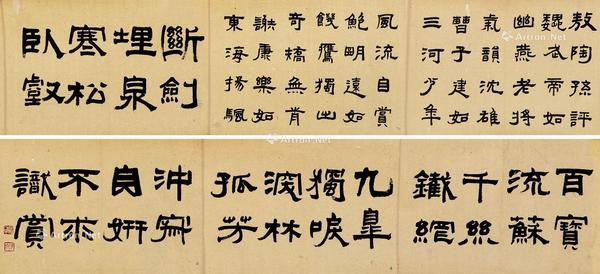 敖陶孫評
魏武帝如
幽燕老將
氣韻沈雄
曹子建如
三河少年
風流自賞
鮑明遠如
饑鷹獨出
奇矯無前
謝康樂如
東海揚颿
斷劍
埋泉
寒松
臥壑
百寶
流蘇
千絲
鐵網
九皋
獨唳
深林
孤芳
沖寂
自妍
不求
識賞
Artron.Net